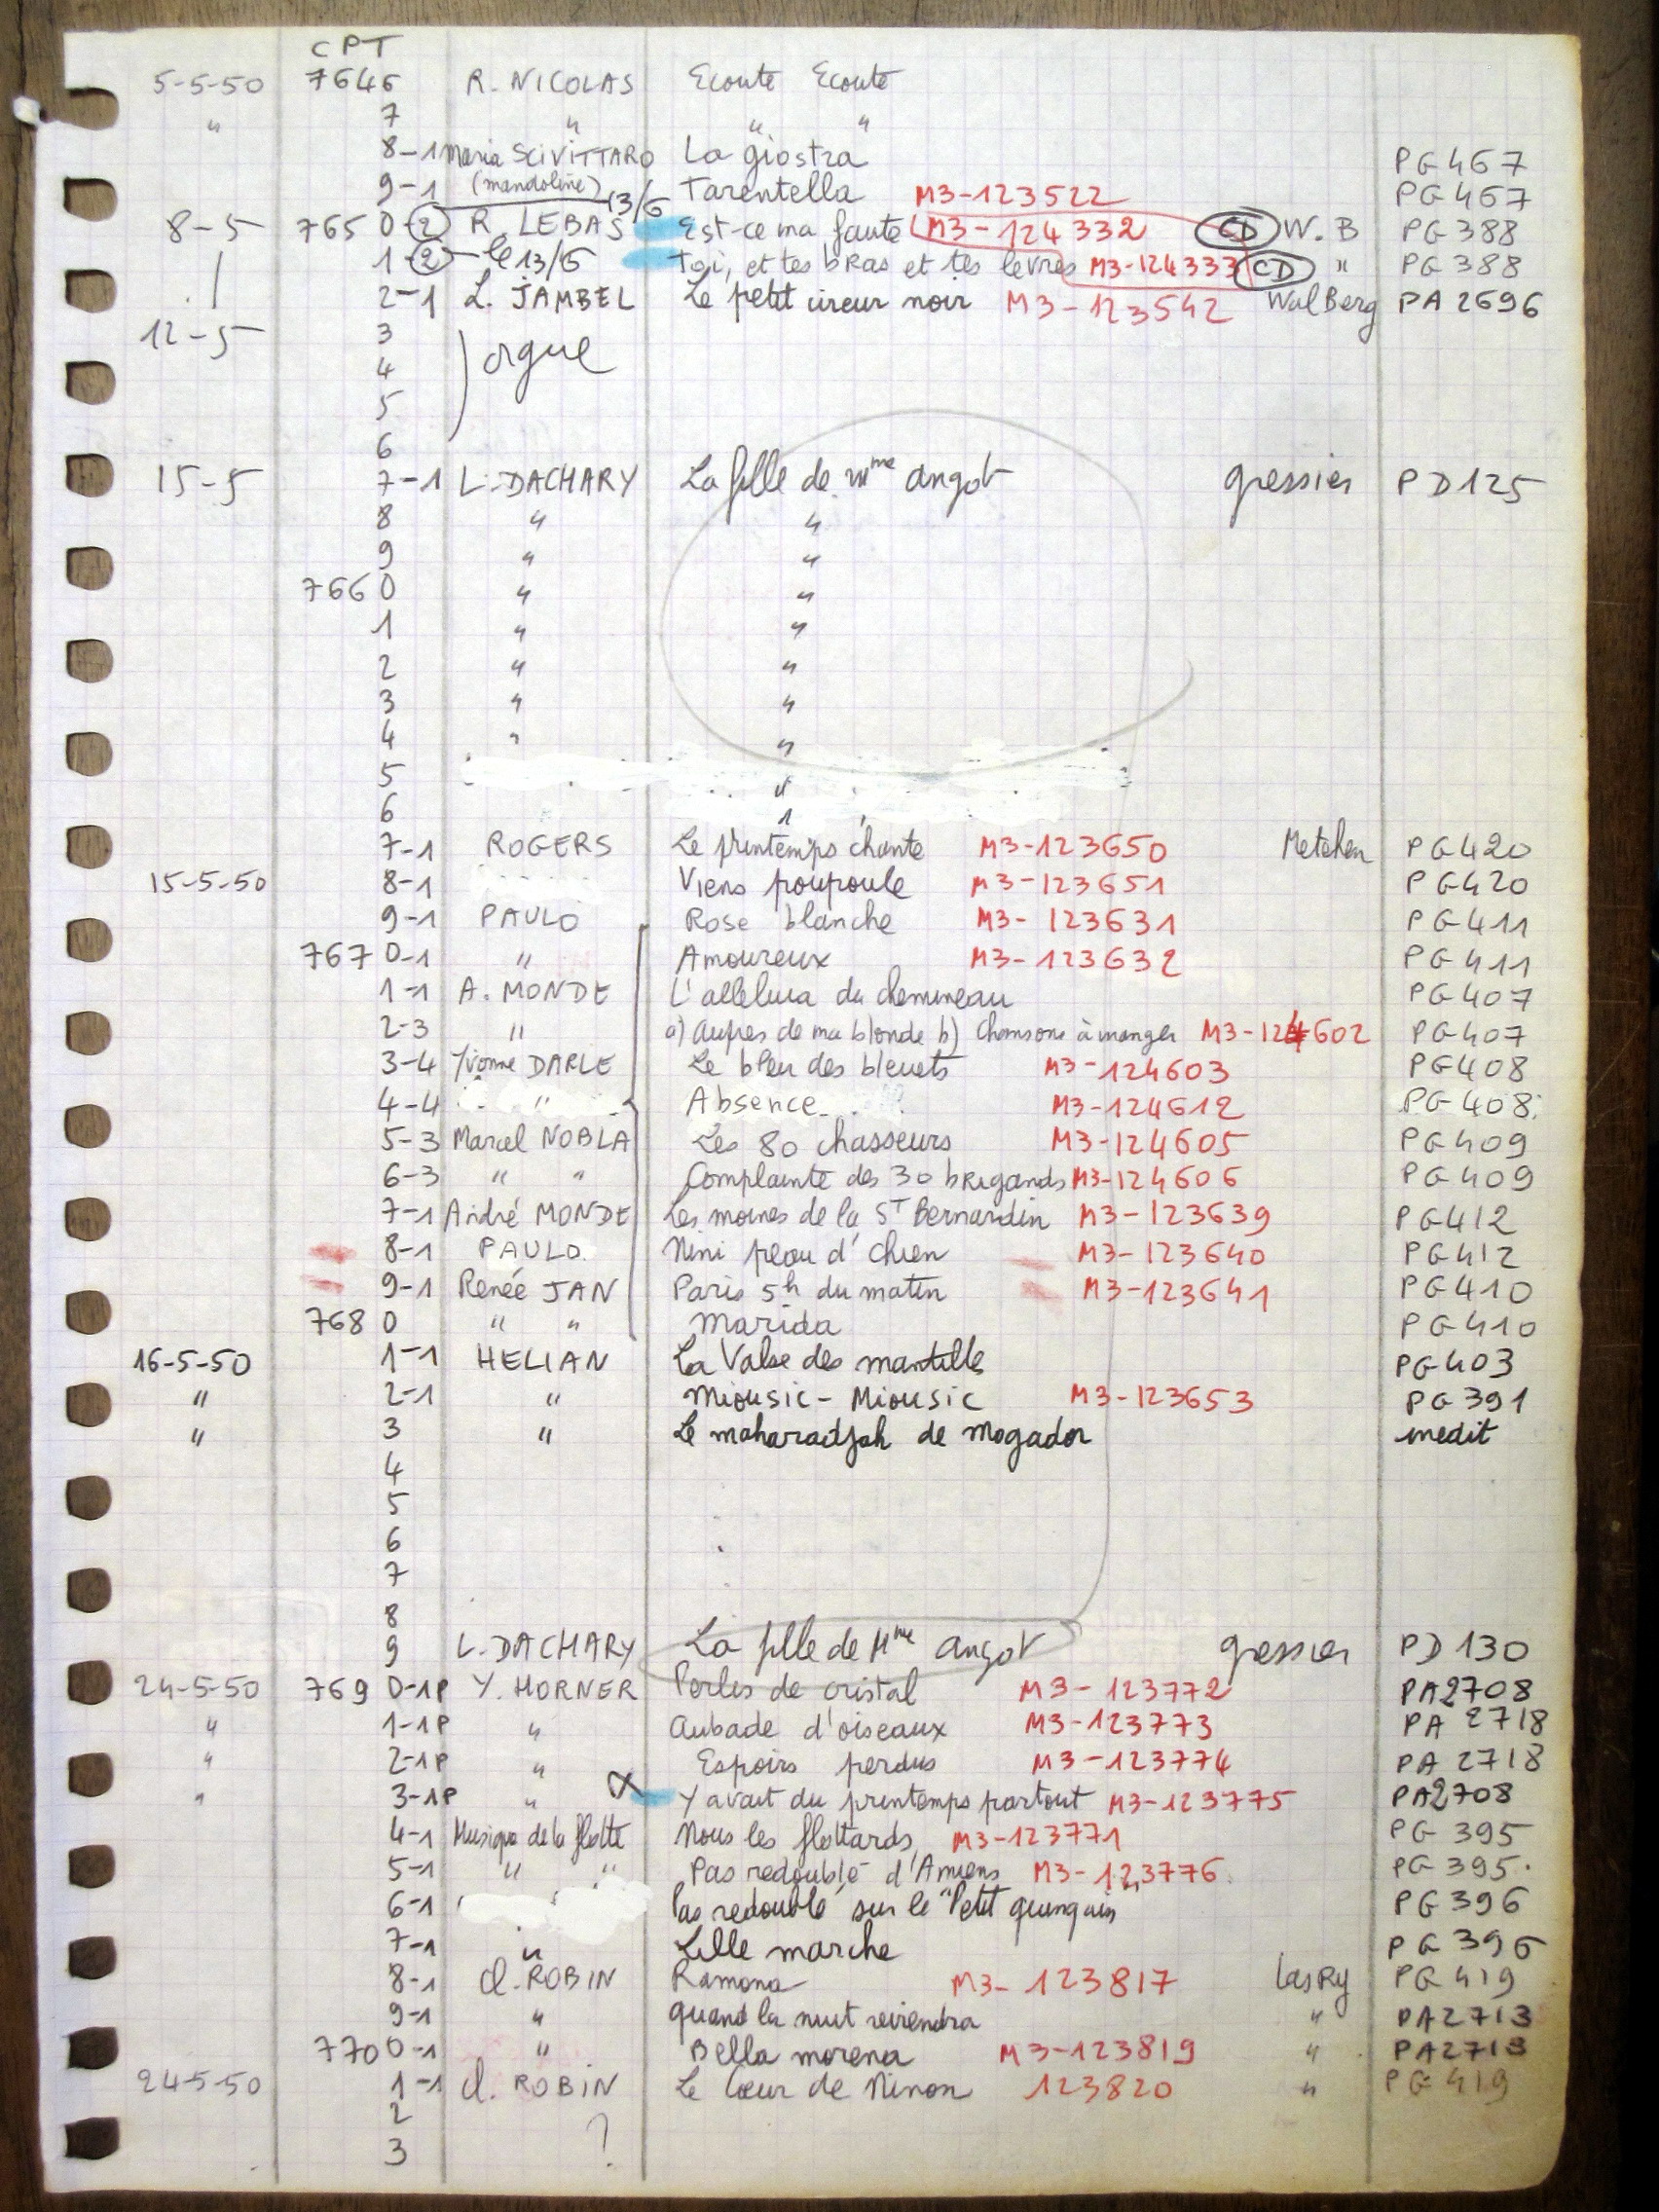 CPT
5-5-50 7646 R. NICOLAS Ecoute Ecoute
" 7 " " "
8-1 Maria SCIVITTARO La giostra PG467
9-1 (mandoline) Tarentella M3-123522 PG467
13/6
8-5 765 0-2 R. LEBAS Est-ce ma faute M3-124332 CD W.B PG388
1-2 le 13/6 Toi, et tes bras et tes levres M3-124333 CD " PG388
2-1 L. JAMBEL Le petit cireur noir M3-123542 WalBerg PA2696
12-5 3
4 orgue
5
6
15-5 7-1 L. DACHARY La fille de Mme angot gressier PD125
8 " "
9 " "
766 0 " "
1 " "
2 " "
3 " "
4 " "
5 "
6
7-1 ROGERS Le printemps chante M3-123650 Metehen PG420
15-5-50 8-1 Viens poupoule M3-123651 PG420
9-1 PAULO Rose blanche M3-123631 PG411
767 0-1 " Amoureux M3-123632 PG411
1-1 A. MONDE L'alleluia du chemineau PG407
2-3 " a) Aupres de ma blonde b) Chansons à manger M3-124602 PG407
3-4 Yvonne DARLE Le bleu des bleuets M3-124603 PG408
4-4 " Absence M3-124612 PG408
5-3 Marcel NOBLA Les 80 chasseurs M3-124605 PG409
6-3 " " Complainte des 30 bRigands M3-124606 PG409
7-1 André MONDE Les moines de la ST Bernardin M3-123639 PG412
8-1 PAULO. Nini peau d'chien M3-123640 PG412
9-1 Renée JAN Paris 5h du matin M3-123641 PG410
768 0 " " Marida PG410
16-5-50 1-1 HELIAN La Valse des mantille PG403
" 2-1 " Miousic-Miousic M3-123653 PG391
" 3 " Le maharadjah de Mogador inedit
4
5
6
7
8
9 L. DACHARY La fille de Mme angot gressier PD130
24-5-50 769 0-1P Y. HORNER Perles de cristal M3-123772 PA2708
" 1-1P " Aubade d'oiseaux M3-123773 PA 2718
" 2-1P " Espoirs perdus M3-123774 PA 2718
" 3-1P " Y avait du printemps partout M3-123775 PA2708
4-1 Musique de la flotte Nous les flottards M3-123771 PG 395
5-1 " " Pas redoublé d'Amiens M3-123776 PG 395
6-1 Pas redoublé sur le "Petit quinquin" PG 396
7-1 " Lille marche PG 396
8-1 Cl. ROBIN Ramona M3-123817 LasRy PG419
9-1 " quand la nuit reviendra " PA2713
770 0-1 " Bella morena M3-123819 " PA2713
24-5-50 1-1 Cl. ROBIN Le Coeur de Ninon 123820 " PG419
2
3 ?